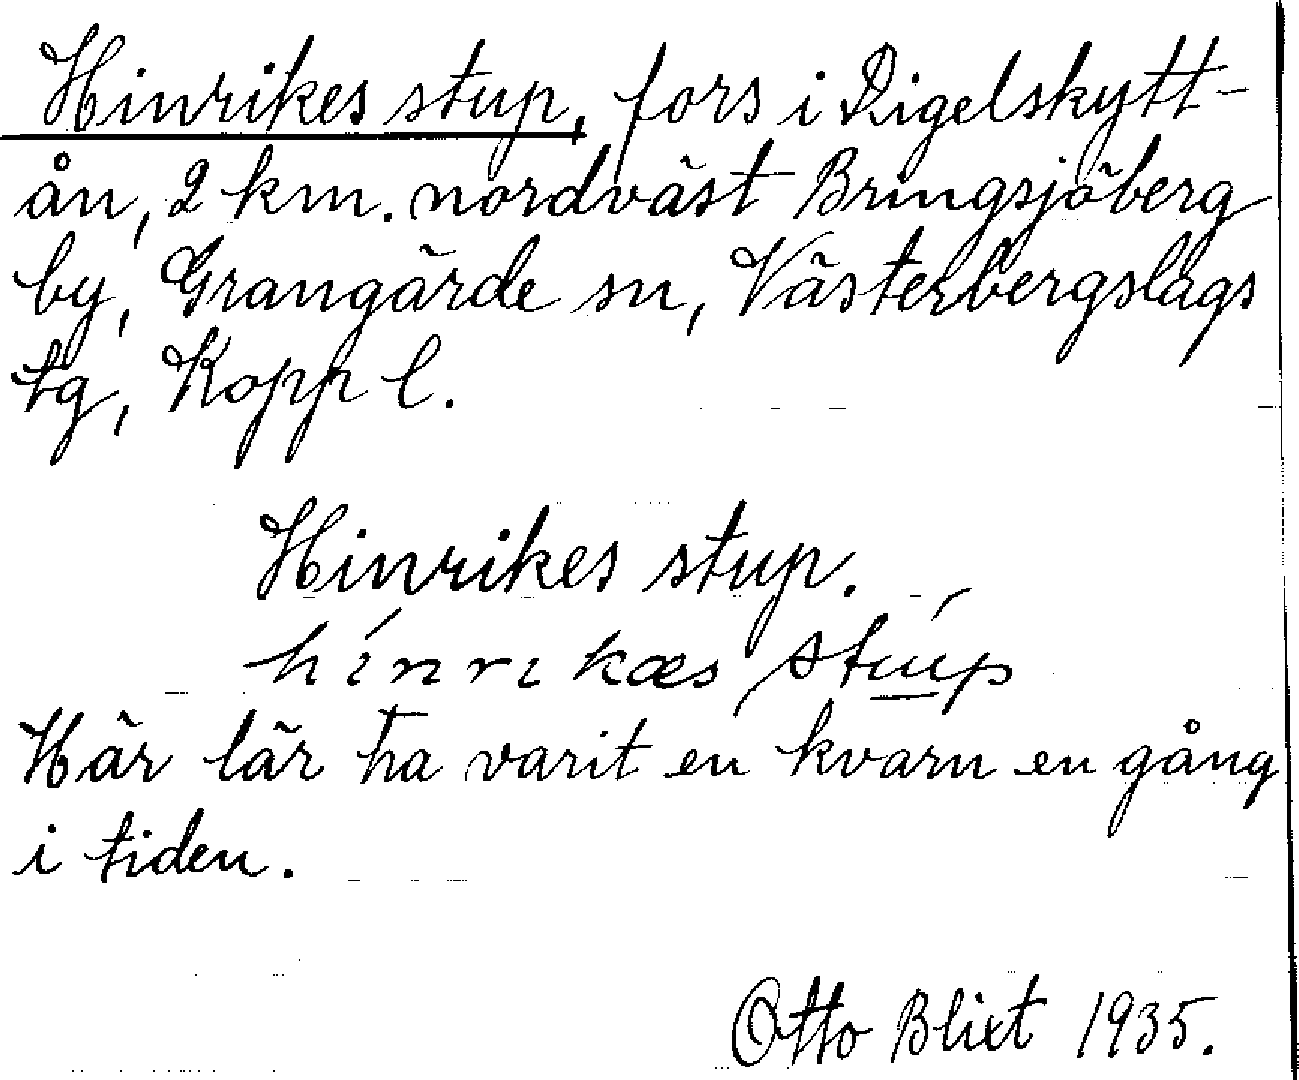 Hinrikes stup, fors i Rigelskytt-
ån, 2 km. nordväst Bringsjöberg
by, Grangärde sn, Västerbergslags
tg, Kopp l.
Hinrikes stup.
hínrikæs stúp
Här lär ha varit en kvarn en gång
i tiden.
Otto Blixt 1935.